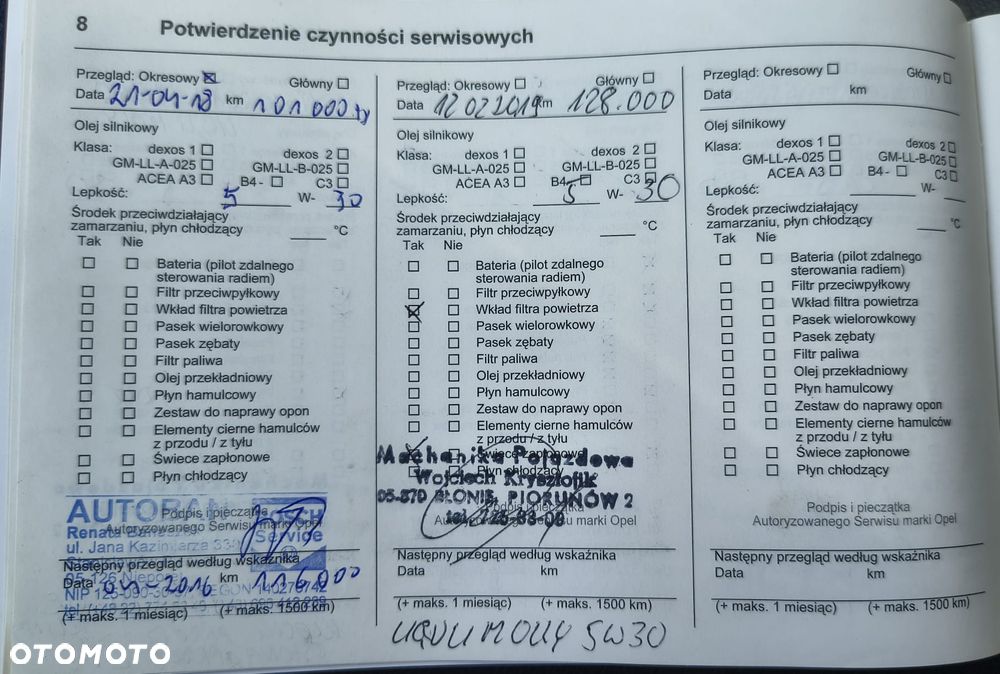 8 Potwierdzenie czynności serwisowych
Przegląd: Okresowy Główny
Data 21-04-18 km 101 000
Olej silnikowy
Klasa: dexos 1 dexos 2
GM-LL-A-025 GM-LL-B-025
ACEA A3 B4 - C3
Lepkość: 5 W- 30
Środek przeciwdziałający
zamarzaniu, płyn chłodzący °C
Tak Nie
Bateria (pilot zdalnego
sterowania radiem)
Filtr przeciwpyłkowy
Wkład filtra powietrza
Pasek wielorowkowy
Pasek zębaty
Filtr paliwa
Olej przekładniowy
Płyn hamulcowy
Zestaw do naprawy opon
Elementy cierne hamulców
z przodu / z tyłu
Świece zapłonowe
Płyn chłodzący
AUTO BOSCH
Podpis i pieczątka
Autoryzowanego Serwisu marki Opel
Renata Service
ul. Jana Kazimierza
Następny przegląd według wskaźnika
Data 04-2016 km 116.000
NIP
(+ maks. 1 miesiąc) (+ maks. 1500 km)
Przegląd: Okresowy Główny
Data 12 02 2019 km 128.000
Olej silnikowy
Klasa: dexos 1 dexos 2
GM-LL-A-025 GM-LL-B-025
ACEA A3 B4 - C3
Lepkość: 5 W- 30
Środek przeciwdziałający
zamarzaniu, płyn chłodzący °C
Tak Nie
Bateria (pilot zdalnego
sterowania radiem)
Filtr przeciwpyłkowy
Wkład filtra powietrza
Pasek wielorowkowy
Pasek zębaty
Filtr paliwa
Olej przekładniowy
Płyn hamulcowy
Zestaw do naprawy opon
Elementy cierne hamulców
z przodu / z tyłu
Świece zapłonowe
Mechanika Pojazdowa
Płyn chłodzący
Wojciech Krysztofik
05-870 BŁONIE, PIORUNÓW 2
Podpis i pieczątka
tel. 725-83-08
Autoryzowanego Serwisu marki Opel
Następny przegląd według wskaźnika
Data km
(+ maks. 1 miesiąc) (+ maks. 1500 km)
LIQUI MOLLY 5W30
Przegląd: Okresowy Główny
Data km
Olej silnikowy
Klasa: dexos 1 dexos 2
GM-LL-A-025 GM-LL-B-025
ACEA A3 B4 - C3
Lepkość: W-
Środek przeciwdziałający
zamarzaniu, płyn chłodzący °C
Tak Nie
Bateria (pilot zdalnego
sterowania radiem)
Filtr przeciwpyłkowy
Wkład filtra powietrza
Pasek wielorowkowy
Pasek zębaty
Filtr paliwa
Olej przekładniowy
Płyn hamulcowy
Zestaw do naprawy opon
Elementy cierne hamulców
z przodu / z tyłu
Świece zapłonowe
Płyn chłodzący
Podpis i pieczątka
Autoryzowanego Serwisu marki Opel
Następny przegląd według wskaźnika
Data km
(+ maks. 1 miesiąc) (+ maks. 1500 km)
OTOMOTO